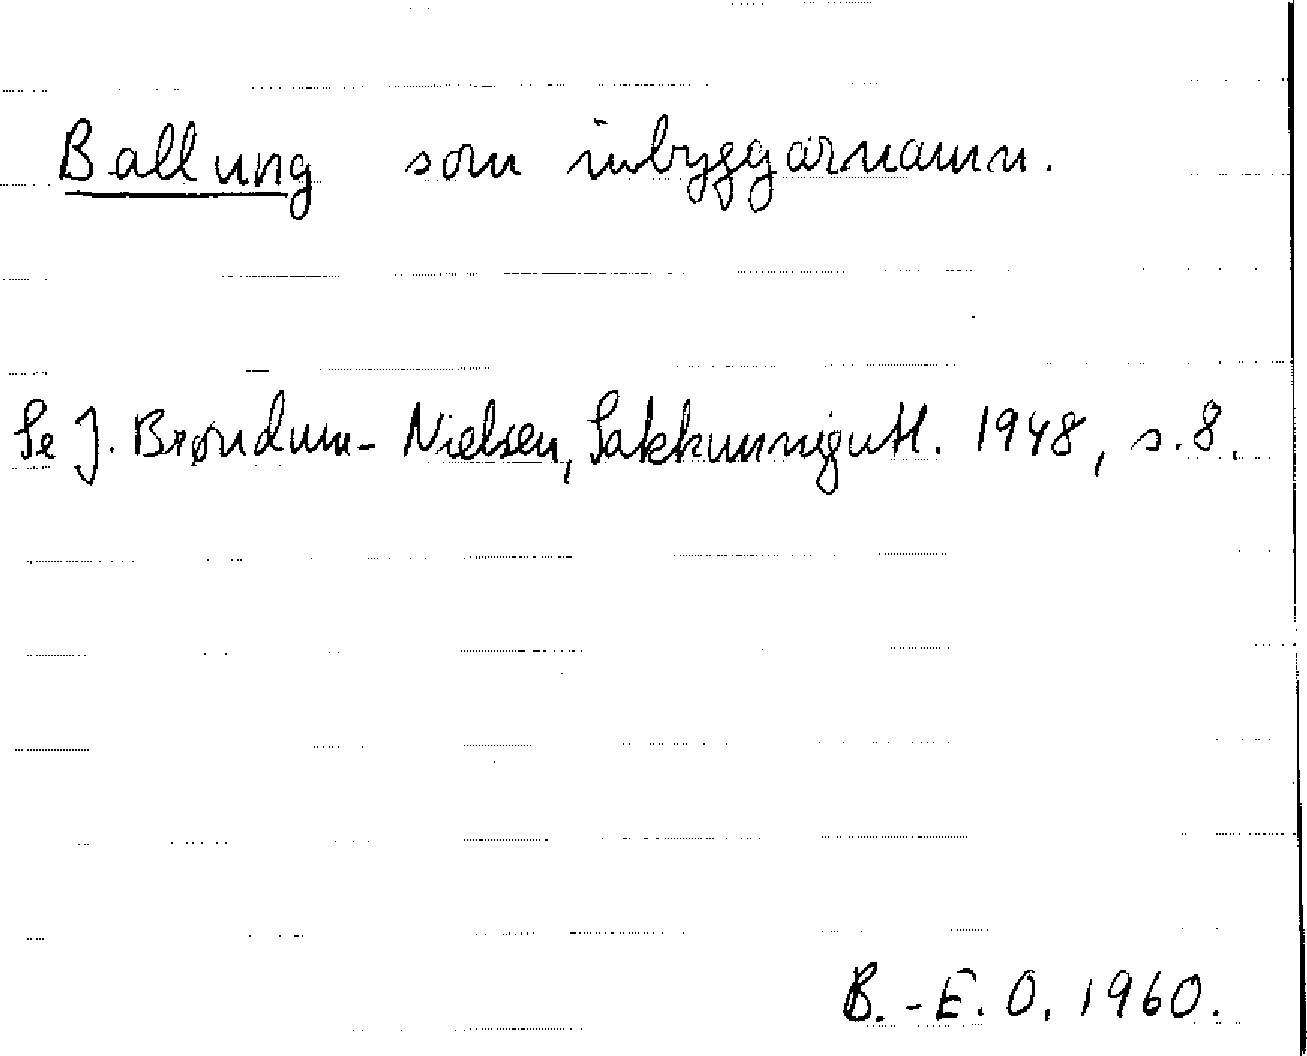 Ballung som inbyggarnamn.
Se J. Brøndum-Nielsen, Sakkunnigutl. 1948, s. 8.
B.-E. O. 1960.